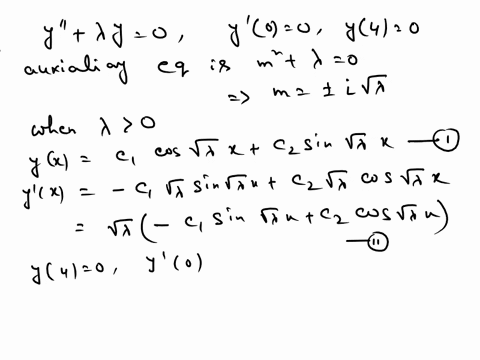 y" + λy = 0, y'(0) = 0, y(4) = 0
auxialiay eq is m² + λ = 0
=> m = ± i√λ
when λ > 0
y(x) = c₁ cos √λ x + c₂ sin √λ x —①
y'(x) = - c₁ √λ sin √λ x + c₂ √λ cos √λ x
= √λ (- c₁ sin √λ x + c₂ cos √λ x)
—⑪
y(4) = 0, y'(0)